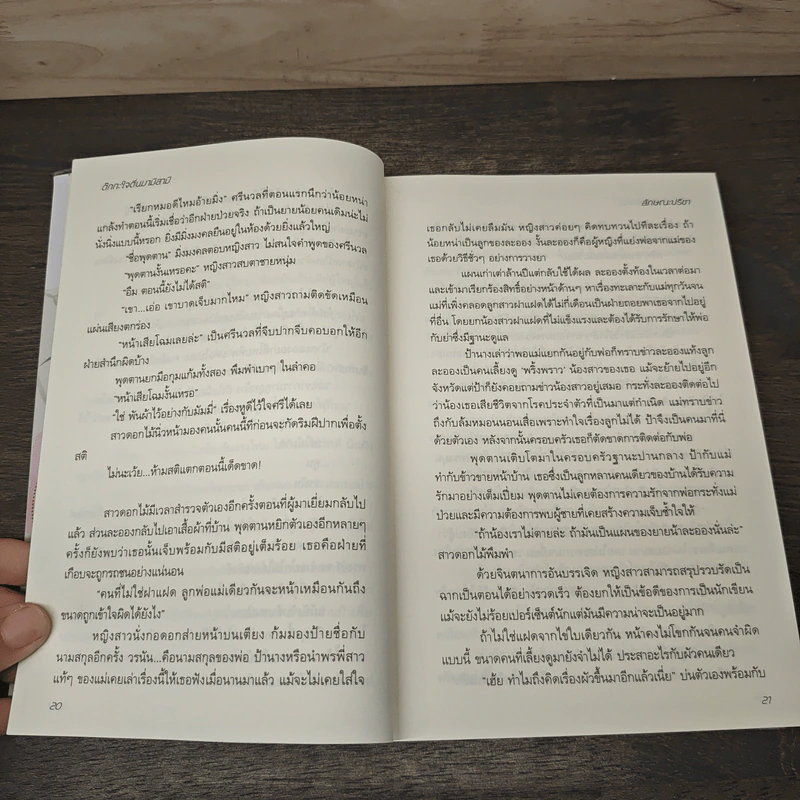 ตึกกะใจดันมามีสามี
"เรียกหมอดีไหมอ้ายมิ่ง" ศรีนวลที่ตอนแรกนึกว่าน้อยหน่า
แกล้งทำตอนนี้เริ่มเชื่อว่าอีกฝ่ายป่วยจริง ถ้าเป็นยายน้อยคนเดิมน่ะไม่
นั่งนิ่งแบบนี้หรอก ยิ่งมีมิ่งมงคลยืนอยู่ในห้องด้วยยิ่งแล้วใหญ่
"ชื่อพุดตาน" มิ่งมงคลตอบหญิงสาว ไม่สนใจคำพูดของศรีนวล
"พุดตานงั้นเหรอคะ" หญิงสาวสบตาชายหนุ่ม
"อืม ตอนนี้ยังไม่ได้สติ"
"เขา...เอ่อ เขาบาดเจ็บมากไหม" หญิงสาวถามติดขัดเหมือน
แผ่นเสียงตกร่อง
"หน้าเสียโฉมเลยล่ะ" เป็นศรีนวลที่จีบปากจีบคอบอกให้อีก
ฝ่ายสำนึกผิดบ้าง
พุดตานยกมือกุมแก้มทั้งสอง พึมพำเบาๆ ในลำคอ
"หน้าเสียโฉมงั้นเหรอ"
"ใช่ พันผ้าไว้อย่างกับมัมมี่" เรื่องหูดีไว้ใจศรีได้เลย
สาวดอกไม้นิ่วหน้ามองคนนั้นคนนี้ทีก่อนจะกัดริมฝีปากเพื่อตั้ง
สติ
ไม่นะเว้ย...ห้ามสติแตกตอนนี้เด็ดขาด!
สาวดอกไม้มีเวลาสำรวจตัวเองอีกครั้งตอนที่ผู้มาเยี่ยมกลับไป
แล้ว ส่วนละอองกลับไปเอาเสื้อผ้าที่บ้าน พุดตานหยิกตัวเองอีกหลายๆ
ครั้งก็ยังพบว่าเธอนั้นเจ็บพร้อมกับมีสติอยู่เต็มร้อย เธอคือฝ่ายที่
เกือบจะถูกรถชนอย่างแน่นอน
"คนที่ไม่ใช่ฝาแฝด ลูกพ่อแม่เดียวกันจะหน้าเหมือนกันถึง
ขนาดถูกเข้าใจผิดได้ยังไง"
หญิงสาวนั่งกอดอกส่ายหน้าบนเตียง ก้มมองป้ายชื่อกับ
นามสกุลอีกครั้ง วรนัน...คือนามสกุลของพ่อ ป้านางหรือนำพรพี่สาว
แท้ๆ ของแม่เคยเล่าเรื่องนี้ให้เธอฟังเมื่อนานมาแล้ว แม้จะไม่เคยใส่ใจ
20
ลักษณะปรียา
เธอกลับไม่เคยลืมมัน หญิงสาวค่อยๆ คิดทบทวนไปทีละเรื่อง ถ้า
น้อยหน่าเป็นลูกของละออง งั้นละอองก็คือผู้หญิงที่แย่งพ่อจากแม่ของ
เธอด้วยวิธีชั่วๆ อย่างการวางยา
แผนเก่าเต่าล้านปีแต่กลับใช้ได้ผล ละอองตั้งท้องในเวลาต่อมา
และเข้ามาเรียกร้องสิทธิ์อย่างหน้าด้านๆ หาเรื่องทะเลาะกับแม่ทุกวันจน
แม่ที่เพิ่งคลอดลูกสาวฝาแฝดได้ไม่กี่เดือนเป็นฝ่ายถอยพาเธอจากไปอยู่
ที่อื่น โดยยกน้องสาวฝาแฝดที่ไม่แข็งแรงและต้องได้รับการรักษาให้พ่อ
กับย่าซึ่งมีฐานะดูแล
ป้านางเล่าว่าพอแม่แยกกันอยู่กับพ่อก็ทราบข่าวละอองแท้งลูก
ละอองเป็นคนเลี้ยงดู 'พริ้งพราว' น้องสาวของเธอ แม้จะย้ายไปอยู่อีก
จังหวัดแต่ป้าก็ยังคอยถามข่าวน้องสาวอยู่เสมอ กระทั่งละอองติดต่อไป
ว่าน้องเธอเสียชีวิตจากโรคประจำตัวที่เป็นมาแต่กำเนิด แม่ทราบข่าว
ถึงกับล้มหมอนนอนเสื่อเพราะทำใจเรื่องลูกไม่ได้ ป้าจึงเป็นคนมาที่นี่
ด้วยตัวเอง หลังจากนั้นครอบครัวเธอก็ตัดขาดการติดต่อกับพ่อ
พุดตานเติบโตมาในครอบครัวฐานะปานกลาง ป้ากับแม่
ทำกับข้าวขายหน้าบ้าน เธอซึ่งเป็นลูกหลานคนเดียวของบ้านได้รับความ
รักมาอย่างเต็มเปี่ยม พุดตานไม่เคยต้องการความรักจากพ่อกระทั่งแม่
ป่วยและมีความต้องการพบผู้ชายที่เคยสร้างความเจ็บช้ำใจให้
"ถ้าน้องเราไม่ตายล่ะ ถ้ามันเป็นแผนของยายน้าละอองนั่นล่ะ"
สาวดอกไม้พึมพำ
ด้วยจินตนาการอันบรรเจิด หญิงสาวสามารถสรุปรวบรัดเป็น
ฉากเป็นตอนได้อย่างรวดเร็ว ต้องยกให้เป็นข้อดีของการเป็นนักเขียน
แม้จะยังไม่ร้อยเปอร์เซ็นต์นักแต่มันมีความน่าจะเป็นอยู่มาก
ถ้าไม่ใช่แฝดจากไข่ใบเดียวกัน หน้าคงไม่โขกกันจนคนจำผิด
แบบนี้ ขนาดคนที่เลี้ยงดูมายังจำไม่ได้ ประสาอะไรกับผัวคนเดียว
"เฮ้ย ทำไมถึงคิดเรื่องผัวขึ้นมาอีกแล้วเนี่ย" บ่นตัวเองพร้อมกับ
21